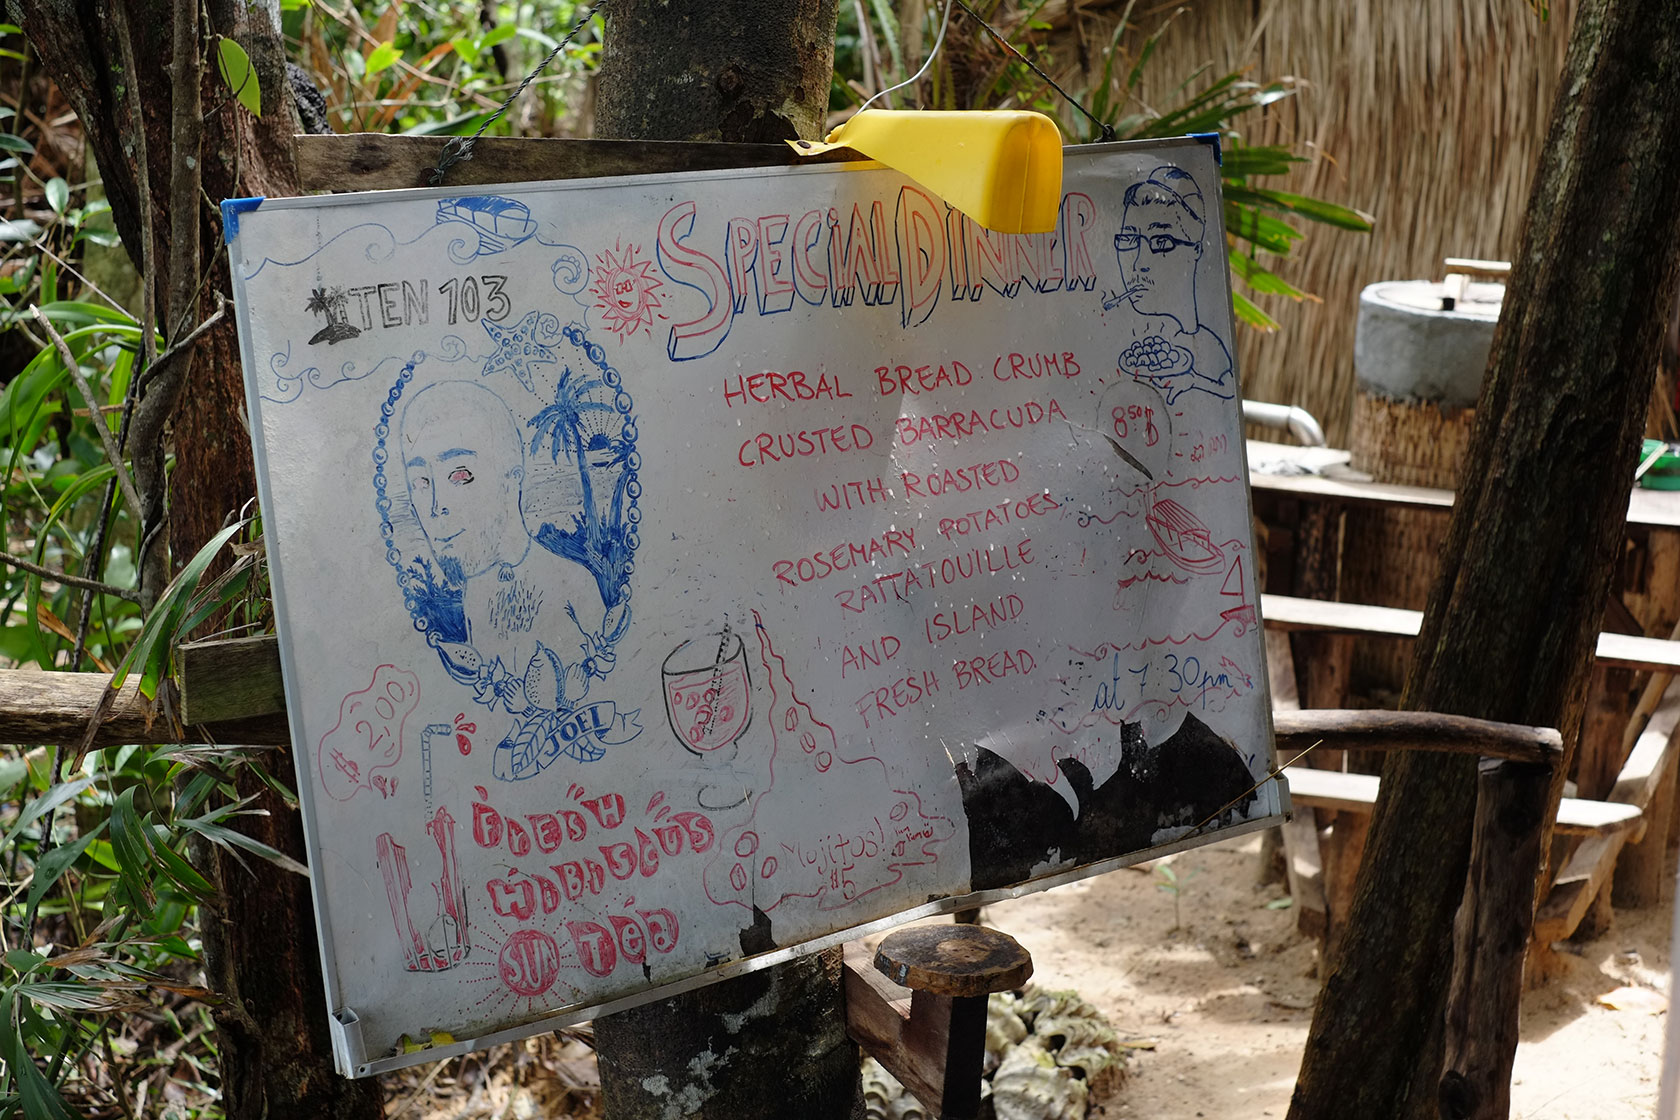 TEN 103
SPECIAL DINNER
HERBAL BREAD CRUMB
CRUSTED BARRACUDA
WITH ROASTED
ROSEMARY POTATOES
RATTATOUILLE
AND ISLAND
FRESH BREAD.
8.50$
at 7.30pm
JOEL
$ 2,00
FRESH
HIBISCUS
SUN TEA
Mojitos!
$5